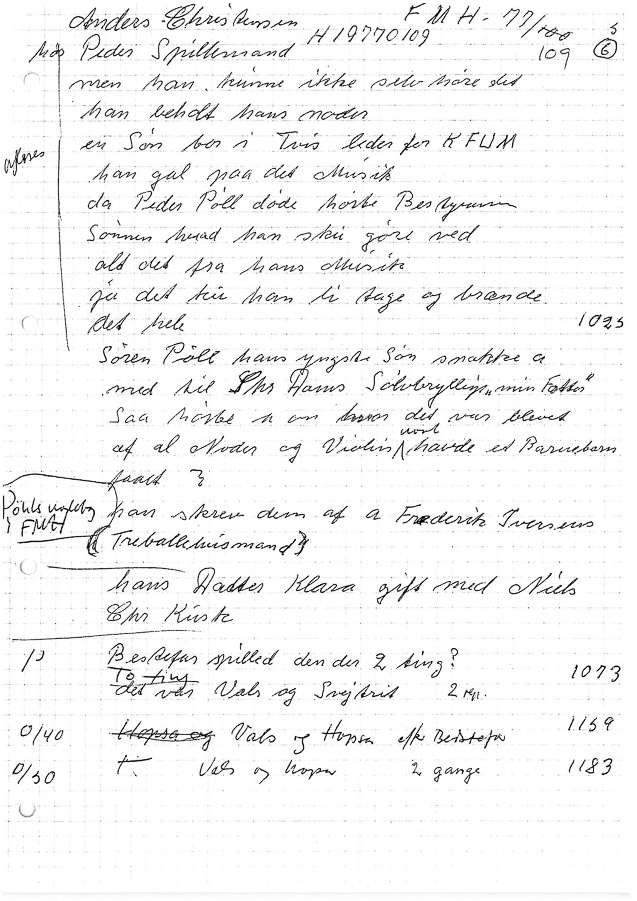 Anders Christensen FMH-77/100 5
H19770109 109 6
hos Peder Spillemand
men han kunne ikke selv høre det
han beholdt hans noder
en Søn bor i Tvis leder for KFUM
han gal paa det Musik
da Peder Pöll døde hørte Bestyreren
Sønnen hvad han sku gøre ved
alt det fra hans Musik
ja det ku han li tage og brænde
det hele 1025
Sören Pöll hans yngste Søn snakke a
med til Chr Dams Sølvbryllup „min Fætter"
Saa hørte a om hvor det var blevet
af al Noder og Violin nok havde et Barnebarn
faaet }
i FMH
han skrev dem af a Frederik Iversens
(Treballehusmand)
hans Datter Klara gift med Niels
Chr Kusk
Bestefar spilled den der 2 ting? 1073
To ting
det var Vals og Svejtrit 2 rep.
0/40 Hopsa og Vals og Hopsa efter Bedstefar 1159
0/50 T. Vals og hopsa 2 gange 1183